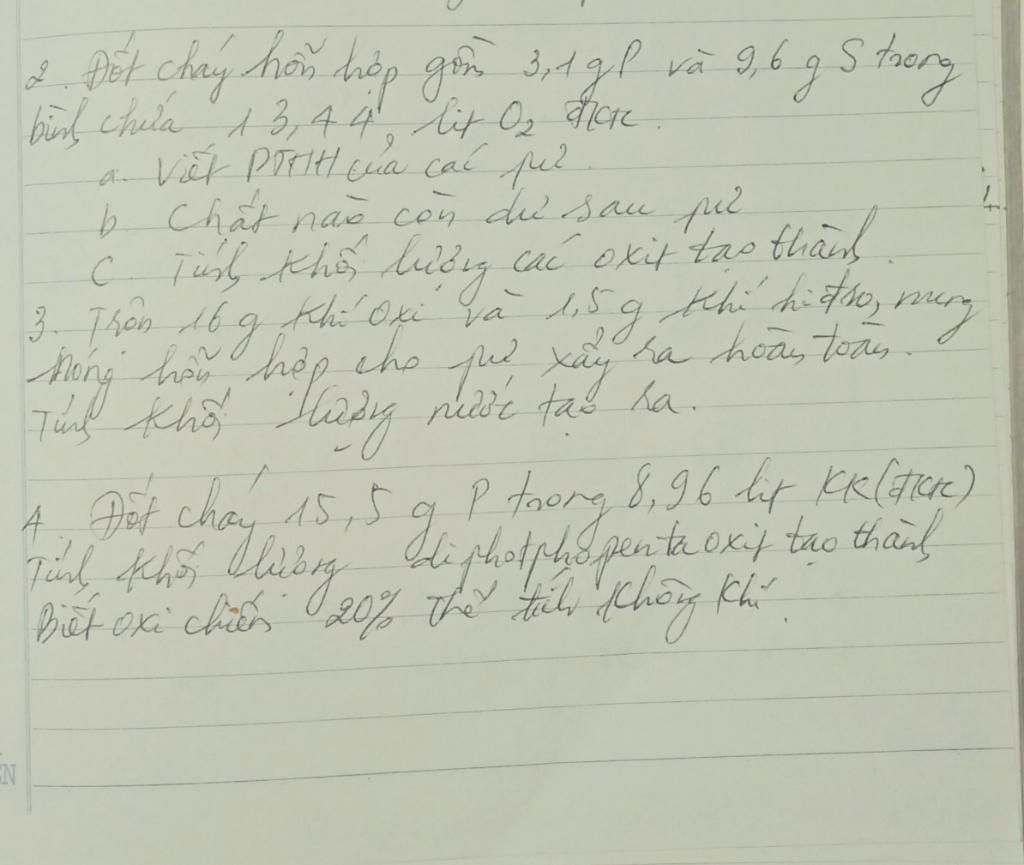 2. Đốt cháy hỗn hợp gồm 3,1 g P và 9,6 g S trong
bình chứa 13,44, lit O2 đktc.
a. Viết PTHH của các pứ.
b. Chất nào còn dư sau pứ
c. Tính khối lượng các oxit tạo thành.
3. Trộn 16 g khí oxi và 1,5 g khí hiđro, nung
nóng hỗn hợp cho pứ xẩy ra hoàn toàn.
Tính khối lượng nước tạo ra.
4. Đốt cháy 15,5 g P trong 8,96 lit KK (đktc)
Tính khối lượng điphotphopenta oxit tạo thành
Biết oxi chiếm 20% thể tích không khí.